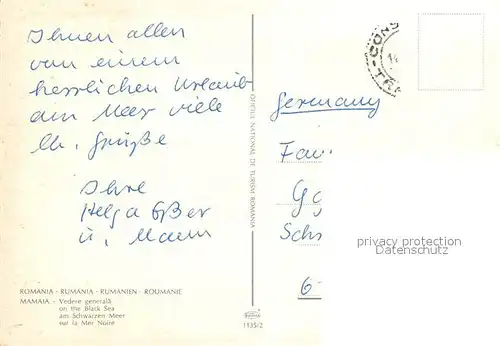 Ihnen allen
von einem
herrlichen Urlaub
am Meer viele
lb. Grüße
Ihre
Helga Eßer
u. Mann
ROMANIA - RUMANIA - RUMÄNIEN - ROUMANIE
MAMAIA - Vedere generală
on the Black Sea
am Schwarzen Meer
sur la Mer Noire
OFICIUL NATIONAL DE TURISM ROMANIA
1135/2
CONS
TRA
Germany
Fam
Schi
6
privacy protection
Datenschutz